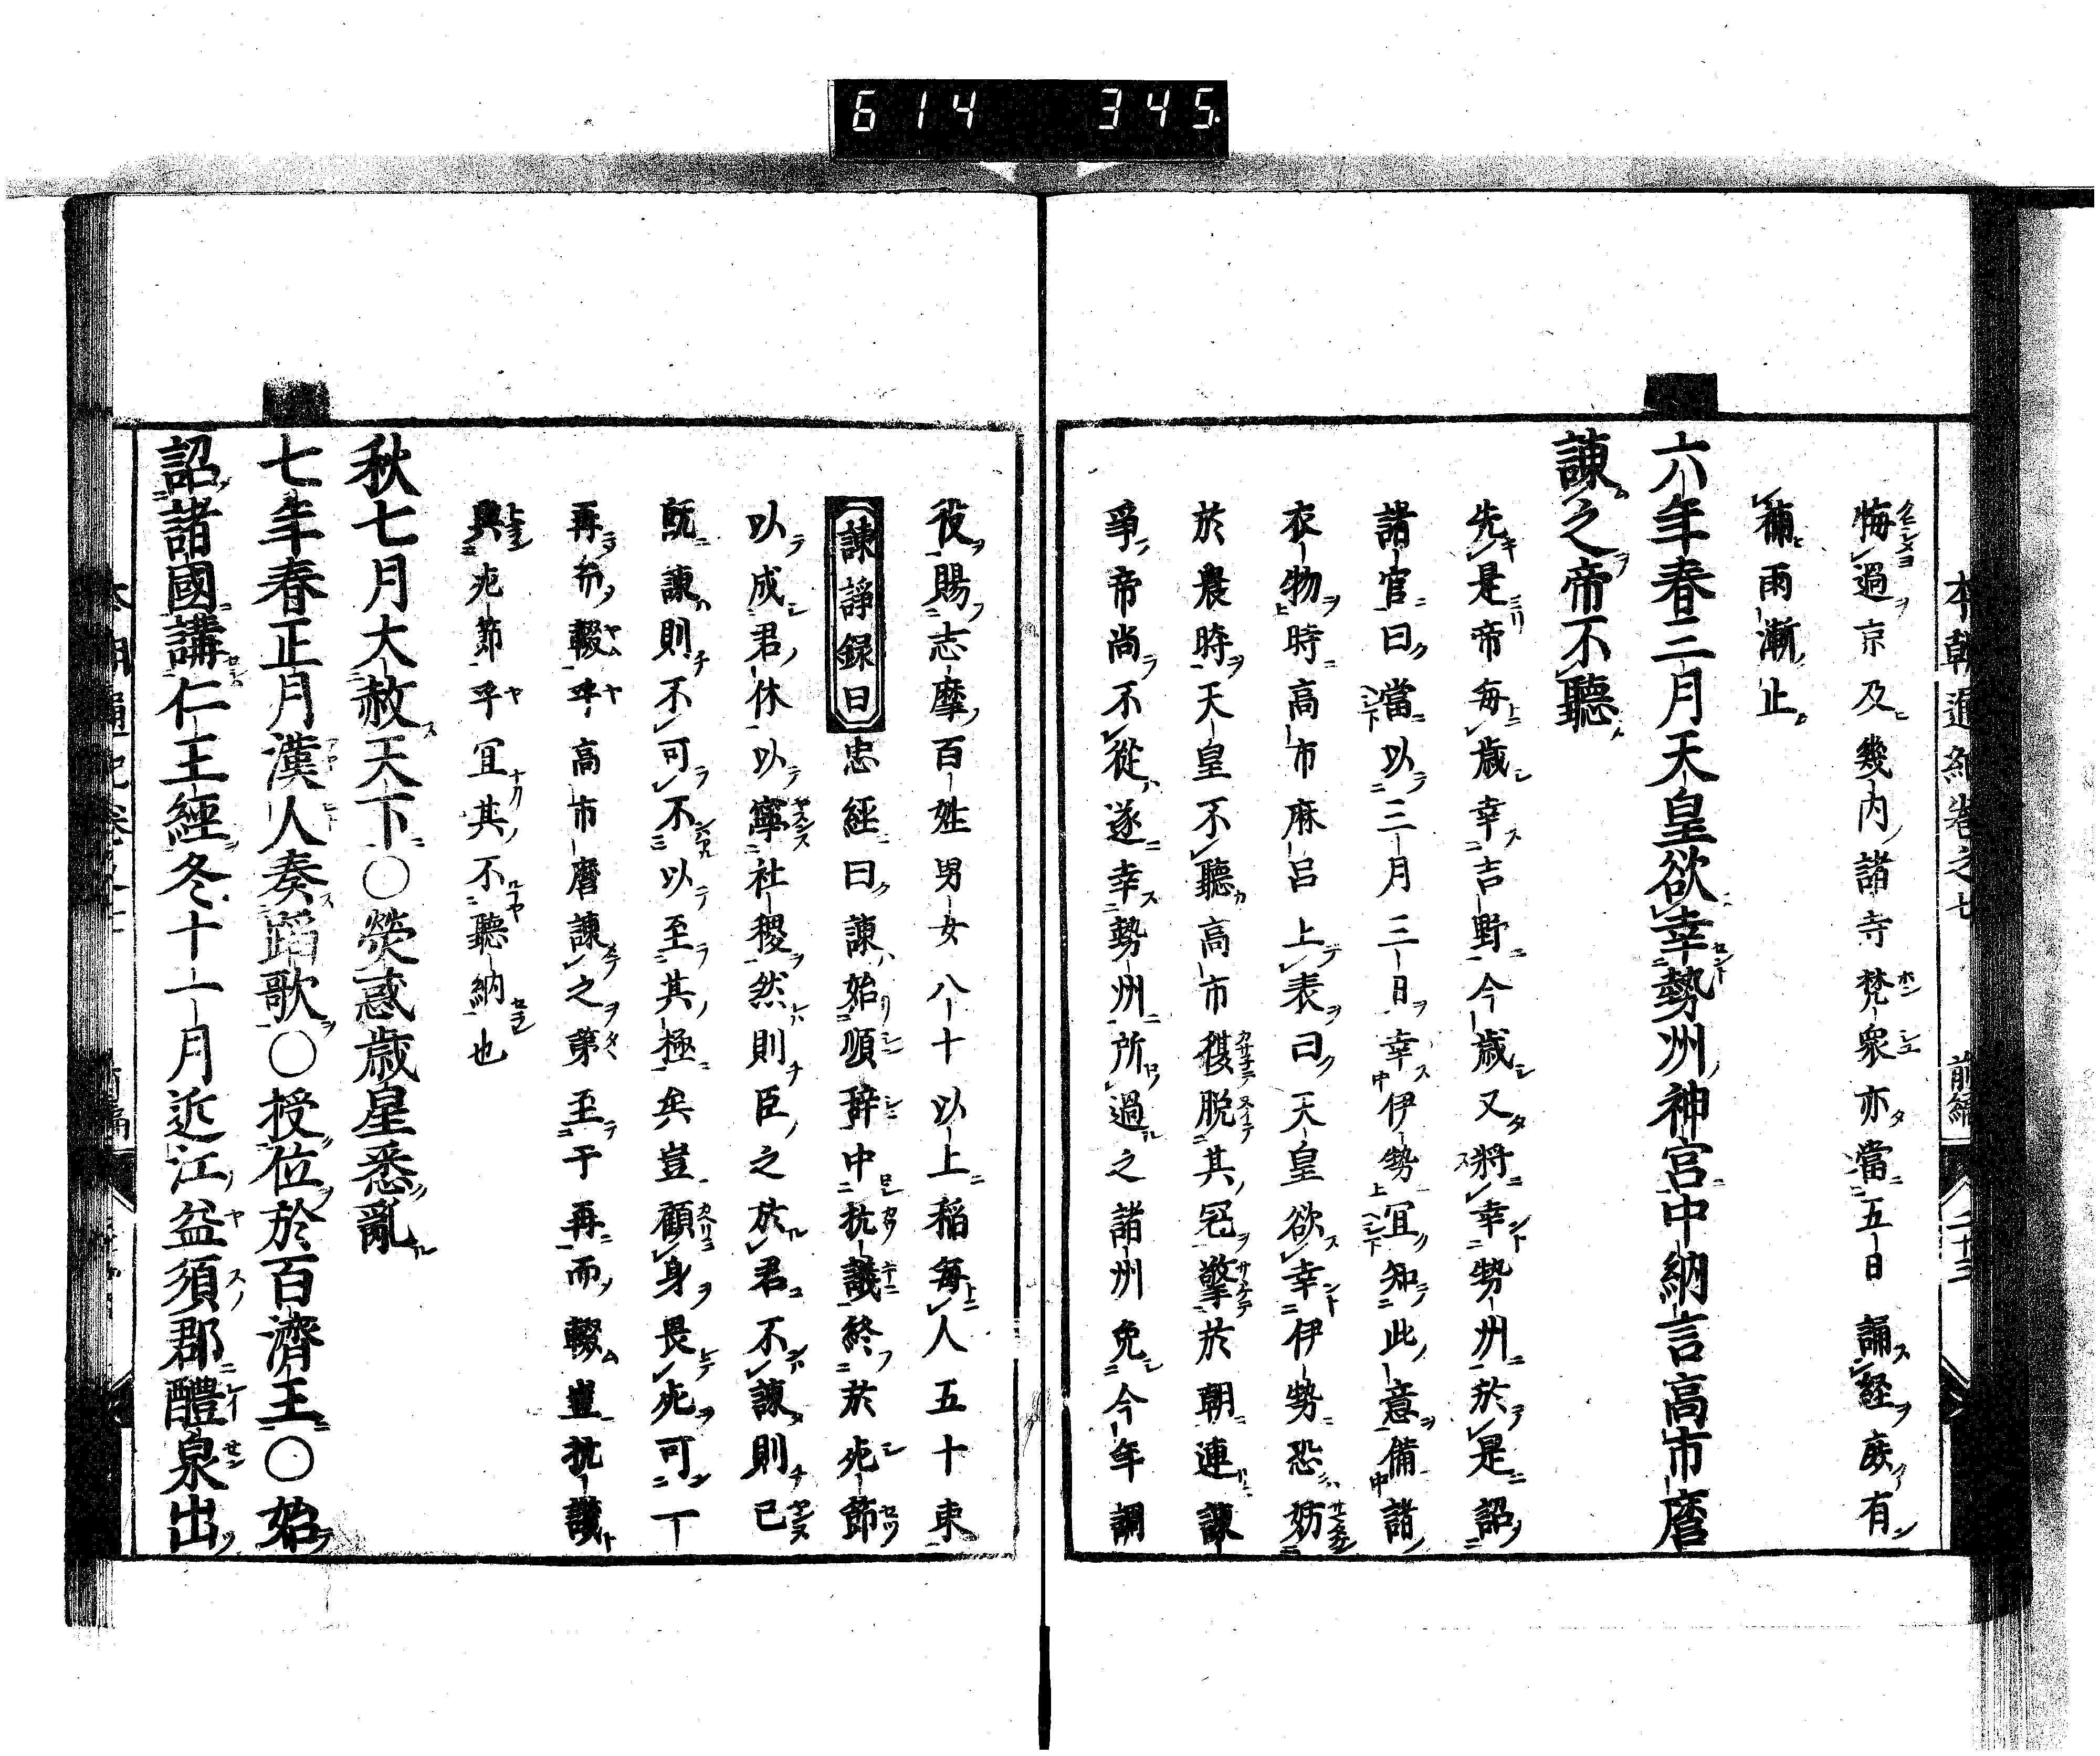 614 345
本朝通紀卷之七 前編 二十三
悔過京及幾内諸寺梵衆亦當五日誦経庶有
補雨漸止
六年春三月天皇欲幸勢州神宮中納言高市麿
諫之帝不聽
先是帝毎歳幸吉野今歳又將幸勢州於是詔
諸官曰當以三月三日幸伊勢宜知此意備諸
衣物時高市麻呂上表曰天皇欲幸伊勢恐妨
於農時天皇不聽高市復脱其冠擎於朝連諫
爭帝尚不從遂幸勢州所過之諸州免今年調
役賜志摩百姓男女八十以上稲毎人五十束
諫諍録曰忠經曰諫始順辭中抗議終於死節
以成君休以寧社稷然則臣之於君不諫則已
既諫則不可不以至其極矣豈顧身畏死可一
再而輟乎高市麿諫之第至于再而輟豈抗議
與死節乎宜其不聽納也
秋七月大赦天下○熒惑歳星悉亂
七年春正月漢人奏蹈歌○授位於百濟王○始
詔諸國講仁王經冬十一月近江益須郡醴泉出